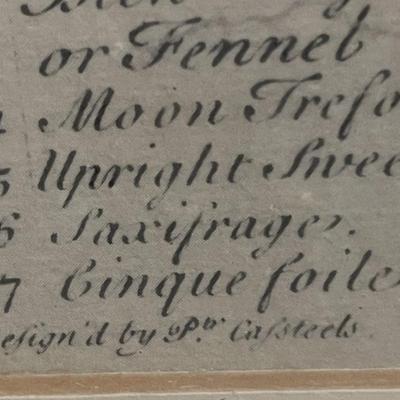 or Fennel
Moon Trefo
5 Upright Swee
6 Saxifrage.
7 Cinque foile
esign'd by P.tr Casteels.